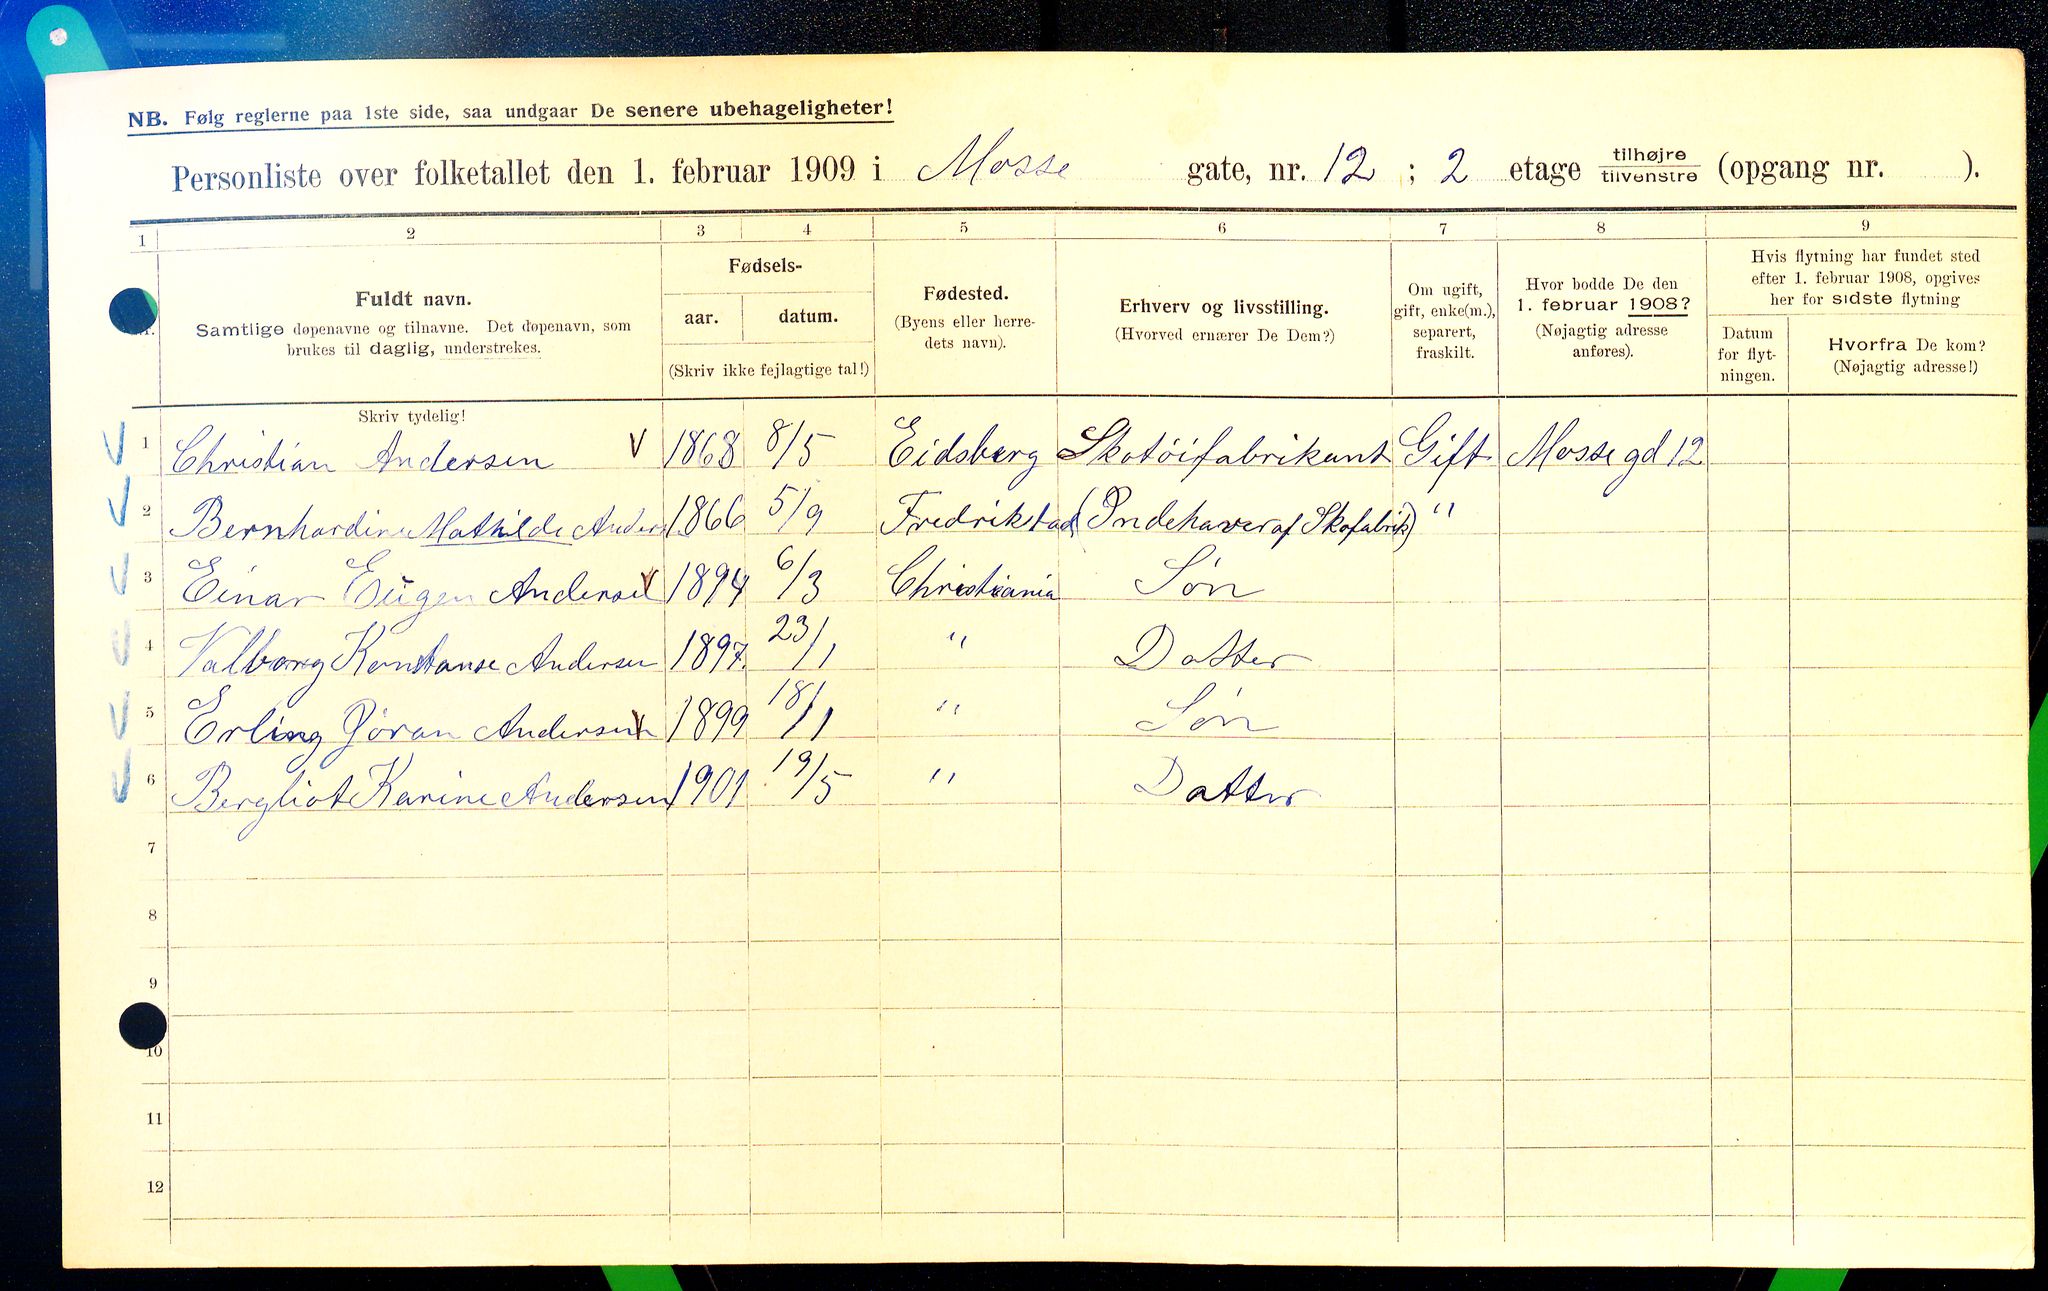 NB. Følg reglerne paa 1ste side, saa undgaar De senere ubehageligheter!
Personliste over folketallet den 1. februar 1909 i Mosse gate, nr. 12 ; 2 etage tilhøjre tilvenstre (opgang nr. ).
1 2 3 4 5 6 7 8 9
Fuldt navn.
Samtlige døpenavne og tilnavne. Det døpenavn, som
brukes til daglig, understrekes.
Skriv tydelig!
Fødsels-
aar. datum.
(Skriv ikke fejlagtige tal!)
Fødested.
(Byens eller herre-
dets navn).
Erhverv og livsstilling.
(Hvorved ernærer De Dem?)
Om ugift,
gift, enke(m.),
separert,
fraskilt.
Hvor bodde De den
1. februar 1908?
(Nøjagtig adresse
anføres).
Hvis flytning har fundet sted
efter 1. februar 1908, opgives
her for sidste flytning
Datum
for flyt-
ningen.
Hvorfra De kom?
(Nøjagtig adresse!)
1 Christian Andersen 1868 8/5 Eidsberg Skotöifabrikant Gift Mosse gd 12
2 Bernhardine Mathilde Anders 1866 5/9 Fredrikstad (Indehaver af Skofabrik) "
3 Einar Eugen Andersen 1894 6/3 Christiania Søn
4 Valborg Konstanse Andersen 1897. 23/1 " Datter
5 Erling Jöran Andersen 1899 18/1 " Søn
6 Bergliot Karine Andersen 1901 19/5 " Datter
7
8
9
10
11
12